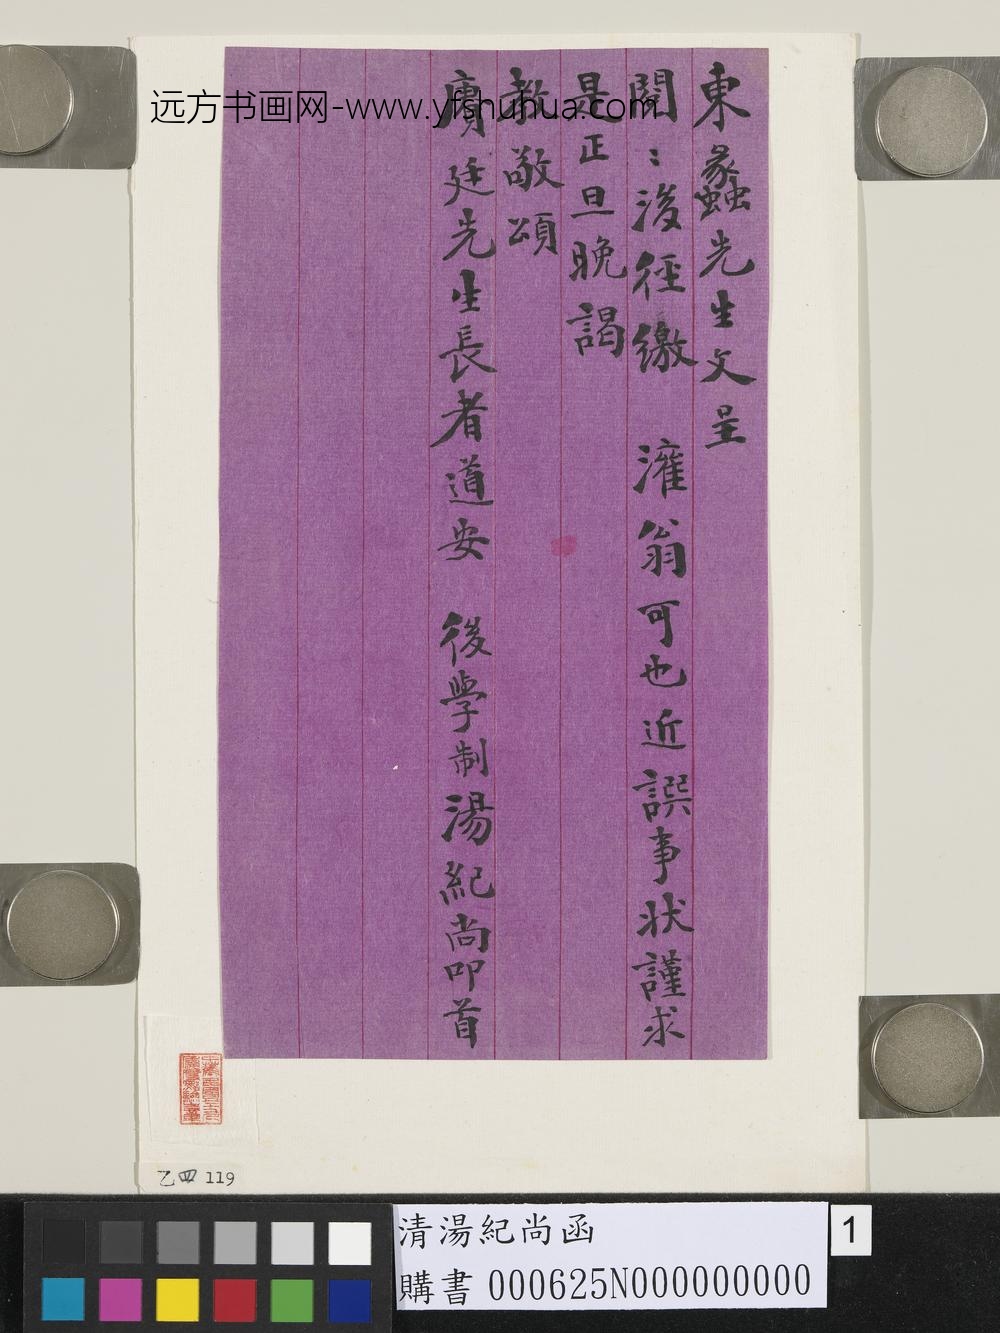 东蠡先生文呈
閱：後徑繳　灌翁可也近譔事狀謹求
是正旦晚謁
教敬頌
賡廷先生長者道安　後學制湯紀尚叩首
远方书画网-www.yfshuhua.com
乙四 119
清湯紀尚函
購書 000625N000000000
1